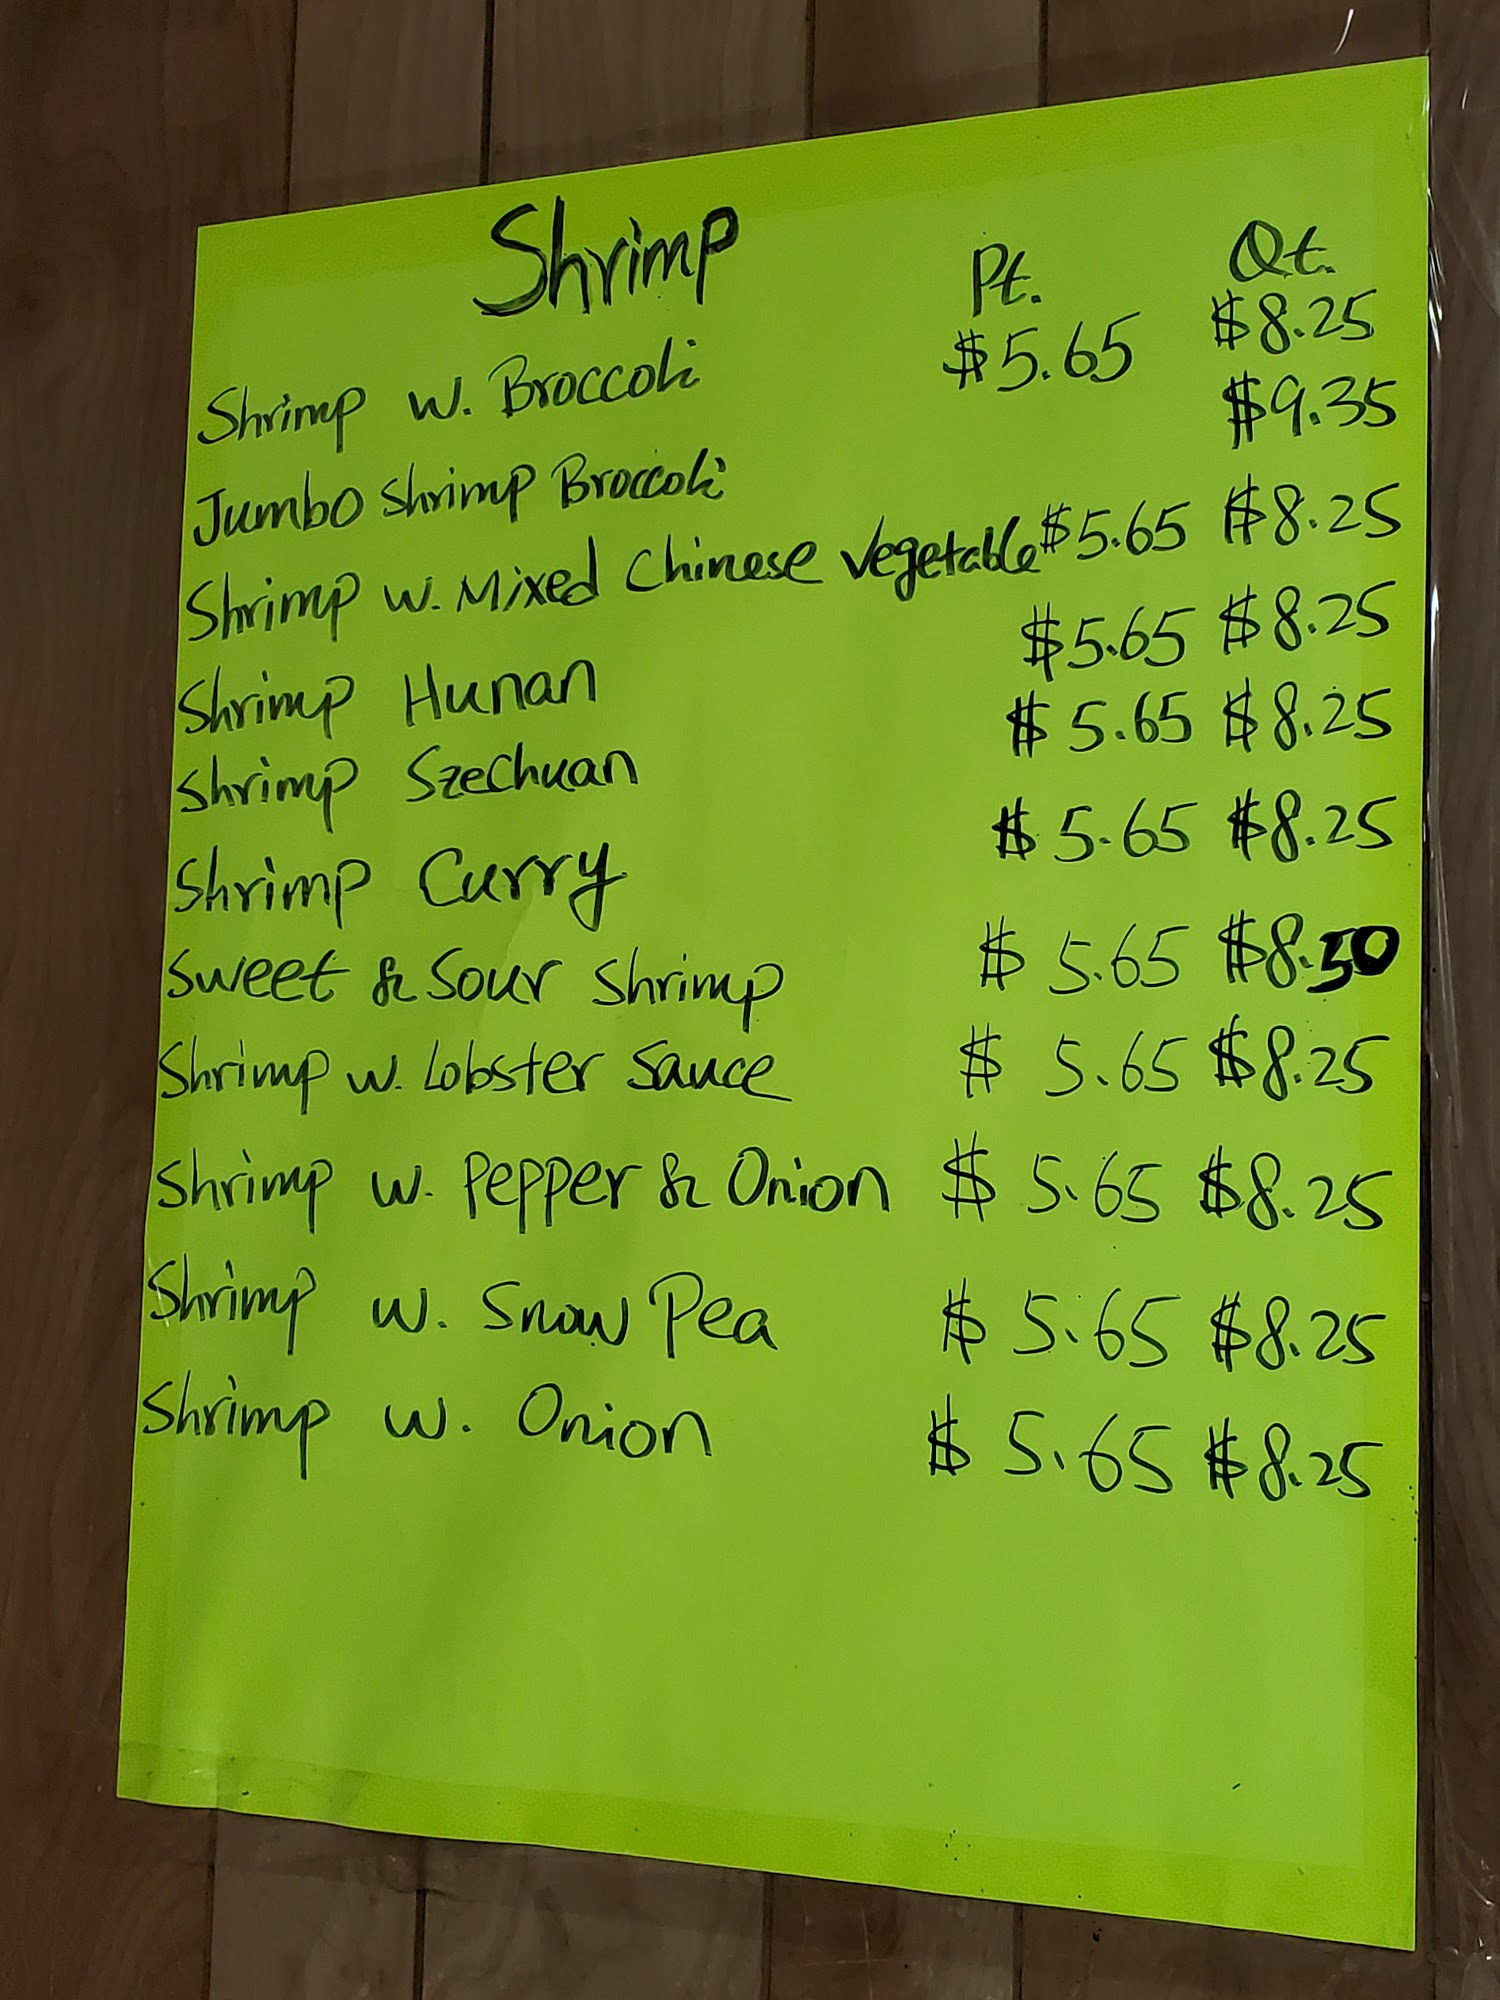 Shrimp Pt. Qt.
Shrimp w. Broccoli $5.65 $8.25
Jumbo Shrimp Broccoli $9.35
Shrimp w. Mixed Chinese Vegetable $5.65 $8.25
Shrimp Hunan $5.65 $8.25
Shrimp Szechuan $5.65 $8.25
Shrimp Curry $5.65 $8.25
Sweet & Sour Shrimp $5.65 $8.50
Shrimp w. Lobster Sauce $5.65 $8.25
Shrimp w. Pepper & Onion $5.65 $8.25
Shrimp w. Snow Pea $5.65 $8.25
Shrimp w. Onion $5.65 $8.25